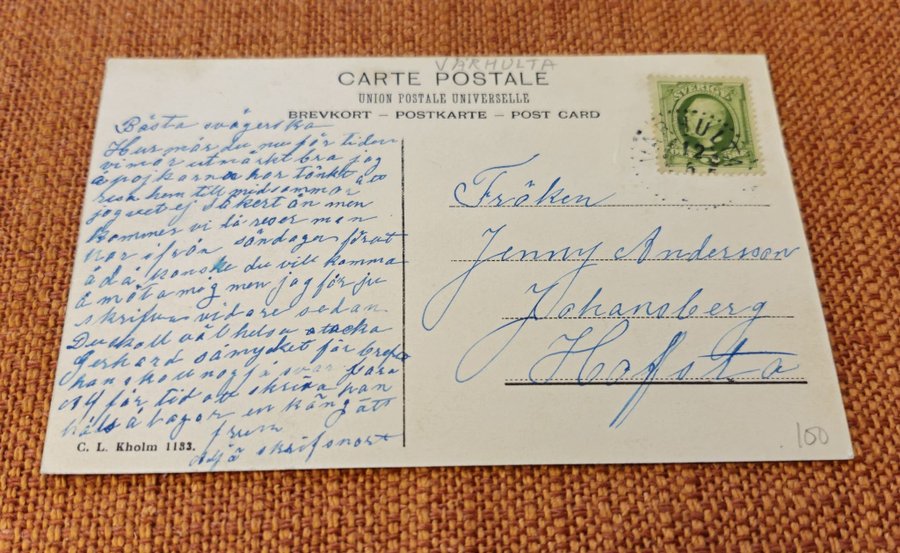 VÄRHULTA
CARTE POSTALE
UNION POSTALE UNIVERSELLE
BREVKORT – POSTKARTE – POST CARD
SVERIGE
Bästa svägerska
Hur mår du nu för tiden
vi mår utmärkt bra jag
å pojkarna har tänkt åt
resa hem till midsommar
jag vet ej säkert än men
kommer vi så reser man
här ifrån söndagen förut
å då kanske du vill komma
å möta mig men jag får ju
skrifva vidare sedan
Du skall väl helsa å tacka
Gerhard så mycket för brefvet
han skall nog få svar bara
får tid att skrifva han
en käng ått
frun
Adjö skrif snart
C. L. Kholm 1183.
Fröken
Jenny Andersson
Johansberg
Hofsta
100